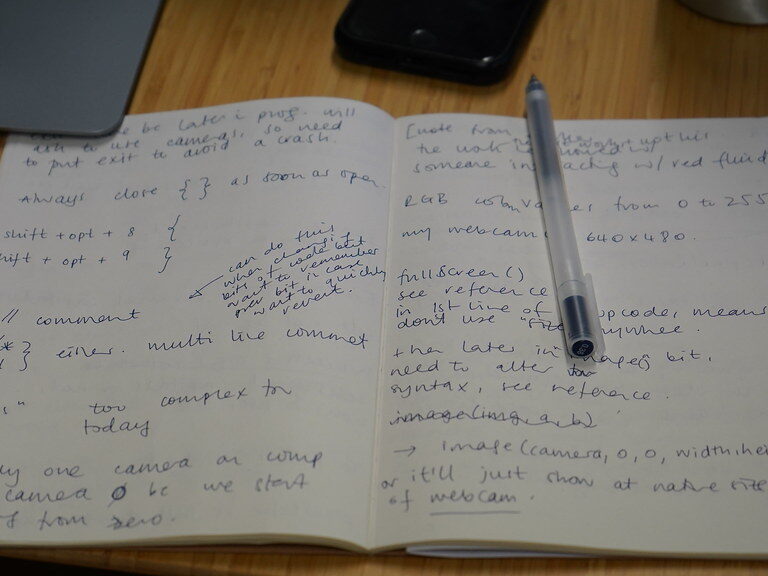 be later i prog. will
ask to use cameras, so need
to put exit to avoid a crash.
Always close { } as soon as open
shift + opt + 8 {
shift + opt + 9 }
can do this
when changing
bits of code but
want to remember
prev bit in case
want to quickly
revert.
// comment
} either. multi line commet
too complex for
today
one camera on comp
camera 0 bc we start
from zero.
[note from
the work
someone interacting w/ red fluid
RGB from 0 to 255
my webcam 640x480.
fullscreen()
see reference
in 1st line of code, means
don't use "size
then later in image() bit,
need to alter
syntax, see reference.
image(img, a, b)
→ image(camera, 0, 0, width, hei
or it'll just show at native size
of webcam.